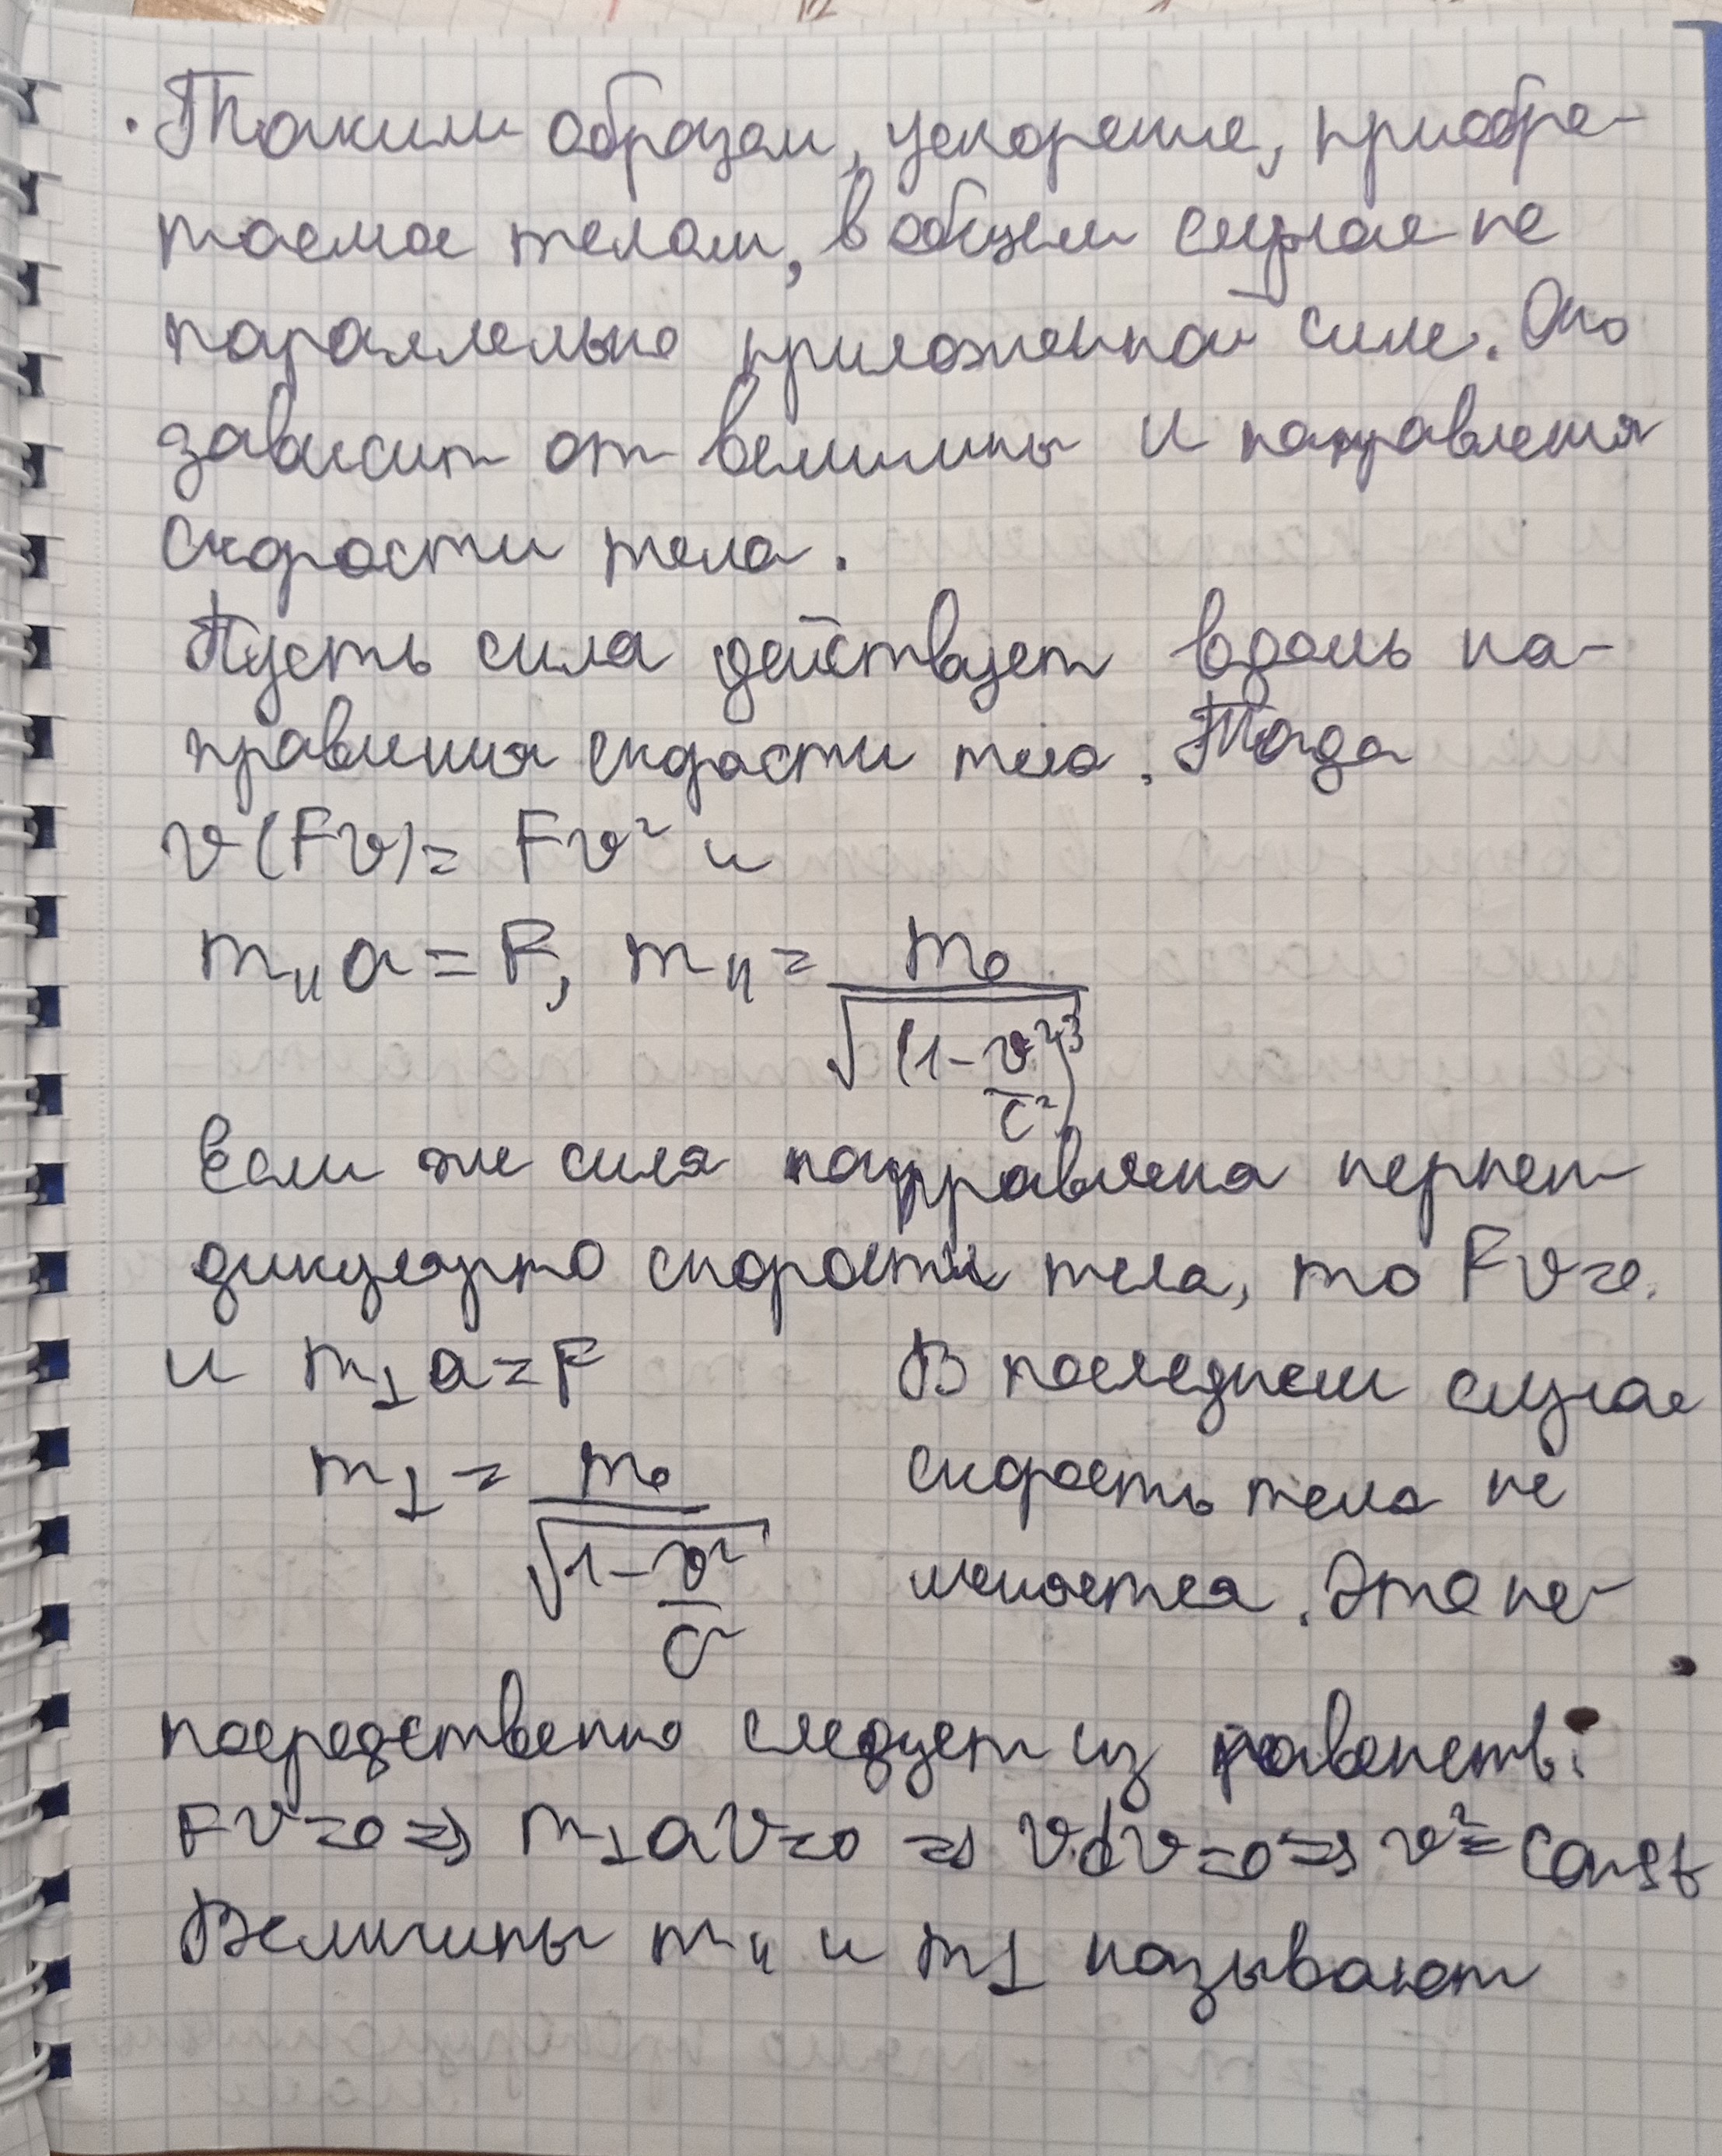 Таким образом, ускорение, приобре-
таемое телом, в общем случае не
параллельно приложенной силе. Оно
зависит от величины и направления
скорости тела.
Пусть сила действует вдоль на-
правления скорости тела. Тогда
v(Fv)= Fv² и
m₍ıı₎a = F, m₍ıı₎ = m₀ / √(1-v²/c²)³
Если же сила направлена перпен
дикулярно скорости тела, то Fv=0.
и m⊥a=F
m⊥ = m₀ / √1-v²/c²
В последнем случае
скорость тела не
меняется. Это не-
посредственно следует из равенств:
Fv=0 => m⊥av=0 => vdv=0 => v²=const
Величины m₍ıı₎ и m⊥ называют